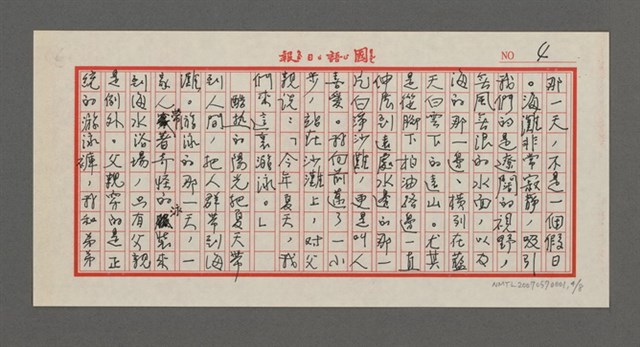 國語日報
NO 4
那一天，不是一個假日
。海灘非常寂靜，吸引
我們的是遼闊的視野，
無風無浪的水面，以及
海的那一邊、橫列在藍
天白雲下的遠山。尤其
是從腳下柏油路邊一直
伸展到遠處水邊的那一
片白淨沙灘，更是叫人
喜愛。我向前邁了一小
步，站在沙灘上，對父
親說：「今年夏天，我
們來這裏游泳。」
酷熱的陽光把夏天帶
到人間，把人群帶到海
灘。游泳的那一天，一
家人帶著不怪的泳裝來
到海水浴場，只有父親
是例外。父親穿的是正
統的游泳褲，我和弟弟
NMTL20070570001, 4/8